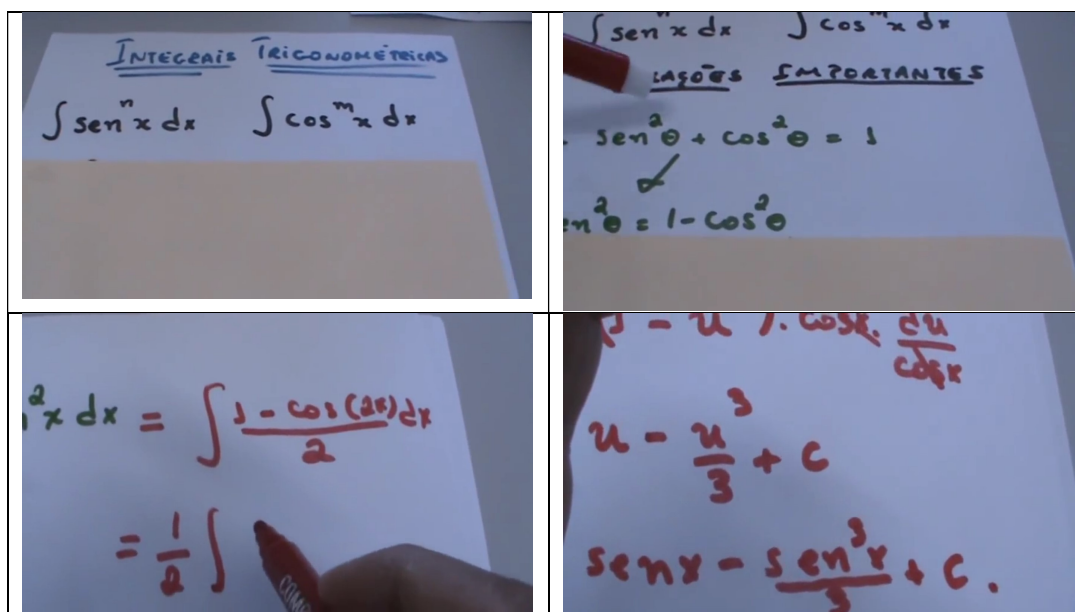 INTEGRAIS TRIGONOMÉTRICAS
∫ senⁿx dx ∫ cosᵐx dx
∫ senⁿx dx ∫ cosᵐx dx
LAÇÕES IMPORTANTES
sen²θ + cos²θ = 1
en²θ = 1 - cos²θ
²x dx = ∫ (1 - cos(2x))/2 dx
= 1/2 ∫
- u ). cosx. du/cosx
u - u³/3 + c
senx - sen³x/3 + c.